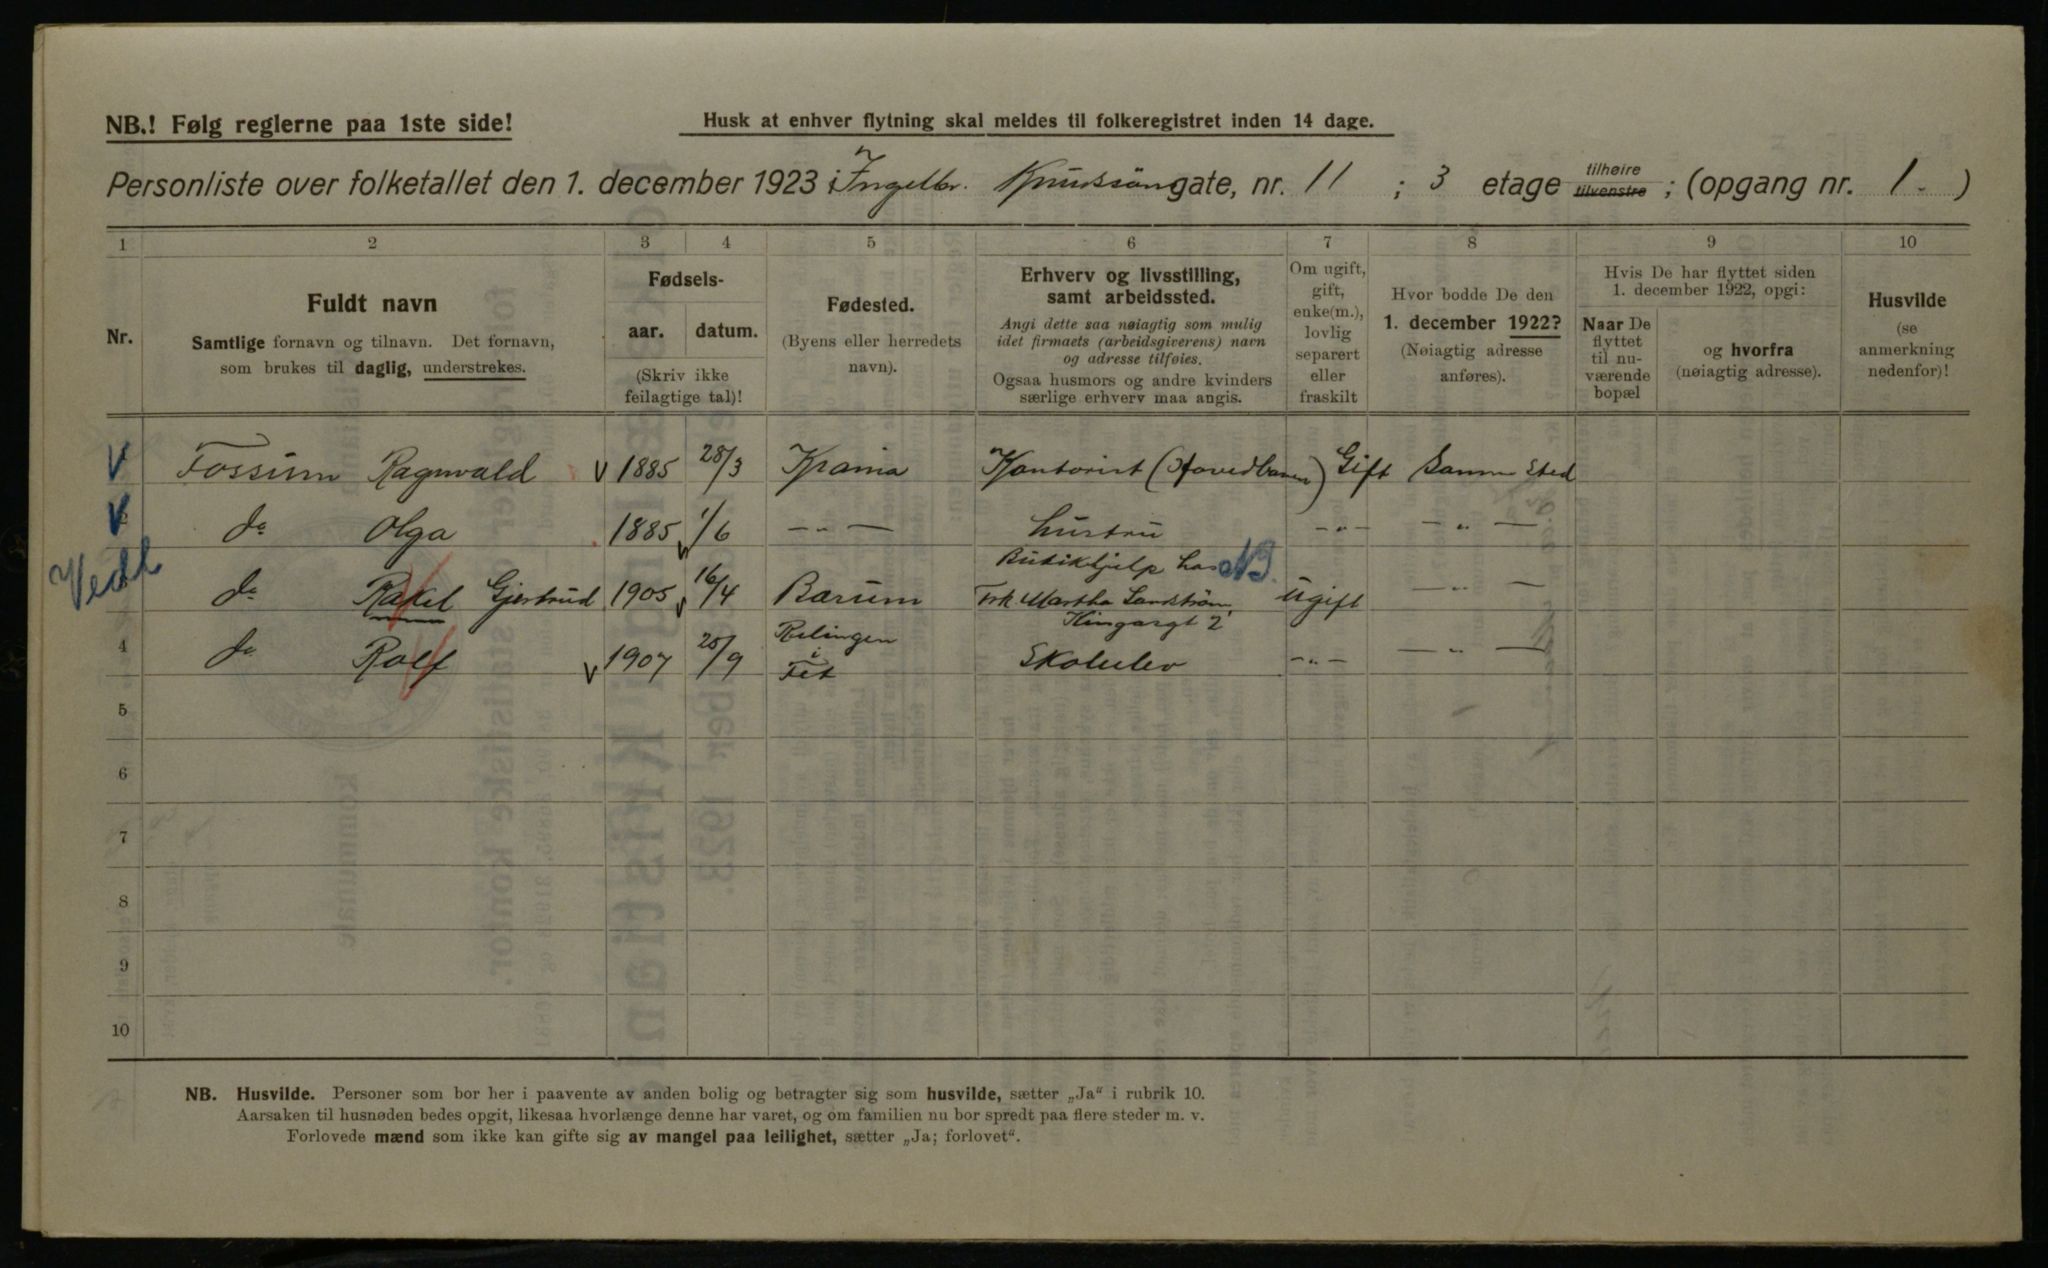 NB.! Følg reglerne paa 1ste side!
Husk at enhver flytning skal meldes til folkeregistret inden 14 dage.
Personliste over folketallet den 1. december 1923 i Ingelbr. Knudsöns gate, nr. 11 ; 3 etage tilhøire tilvenstre ; (opgang nr. 1. )
1 2 3 4 5 6 7 8 9 10
Nr.
Fuldt navn
Samtlige fornavn og tilnavn. Det fornavn,
som brukes til daglig, understrekes.
Fødsels-
aar. datum.
(Skriv ikke
feilagtige tal)!
Fødested.
(Byens eller herredets
navn).
Erhverv og livsstilling,
samt arbeidssted.
Angi dette saa nøiagtig som mulig
idet firmaets (arbeidsgiverens) navn
og adresse tilføies.
Ogsaa husmors og andre kvinders
særlige erhverv maa angis.
Om ugift,
gift,
enke(m.),
lovlig
separert
eller
fraskilt
Hvor bodde De den
1. december 1922?
(Nøiagtig adresse
anføres).
Hvis De har flyttet siden
1. december 1922, opgi:
Naar De
flyttet
til nu-
værende
bopæl
og hvorfra
(nøiagtig adresse).
Husvilde
(se
anmerkning
nedenfor)!
V Fossum Ragnvald V 1885 28/3 Krania Kontorist (Hovedbanen) Gift Samme Sted
V do Olga 1885 V 1/6 — „ — Hustru — „ — — „ —
Vedl do Rakel Gjertrud 1905 V 16/4 Bærum Butikhjelp hos Frk. Martha Sandström, Kingosgt 2 Ugift — „ —
4 do Rolf V 1907 25/9 Rælingen i Fet Skoleelev — „ — — „ —
5
6
7
8
9
10
NB. Husvilde. Personer som bor her i paavente av anden bolig og betragter sig som husvilde, sætter „Ja“ i rubrik 10.
Aarsaken til husnøden bedes opgit, likesaa hvorlænge denne har varet, og om familien nu bor spredt paa flere steder m. v.
Forlovede mænd som ikke kan gifte sig av mangel paa leilighet, sætter „Ja; forlovet“.